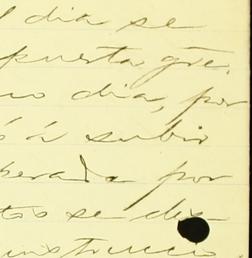 l dia se
puesta gre.
no dia, por
s á subir
perada por
tos se dis-
instruccio